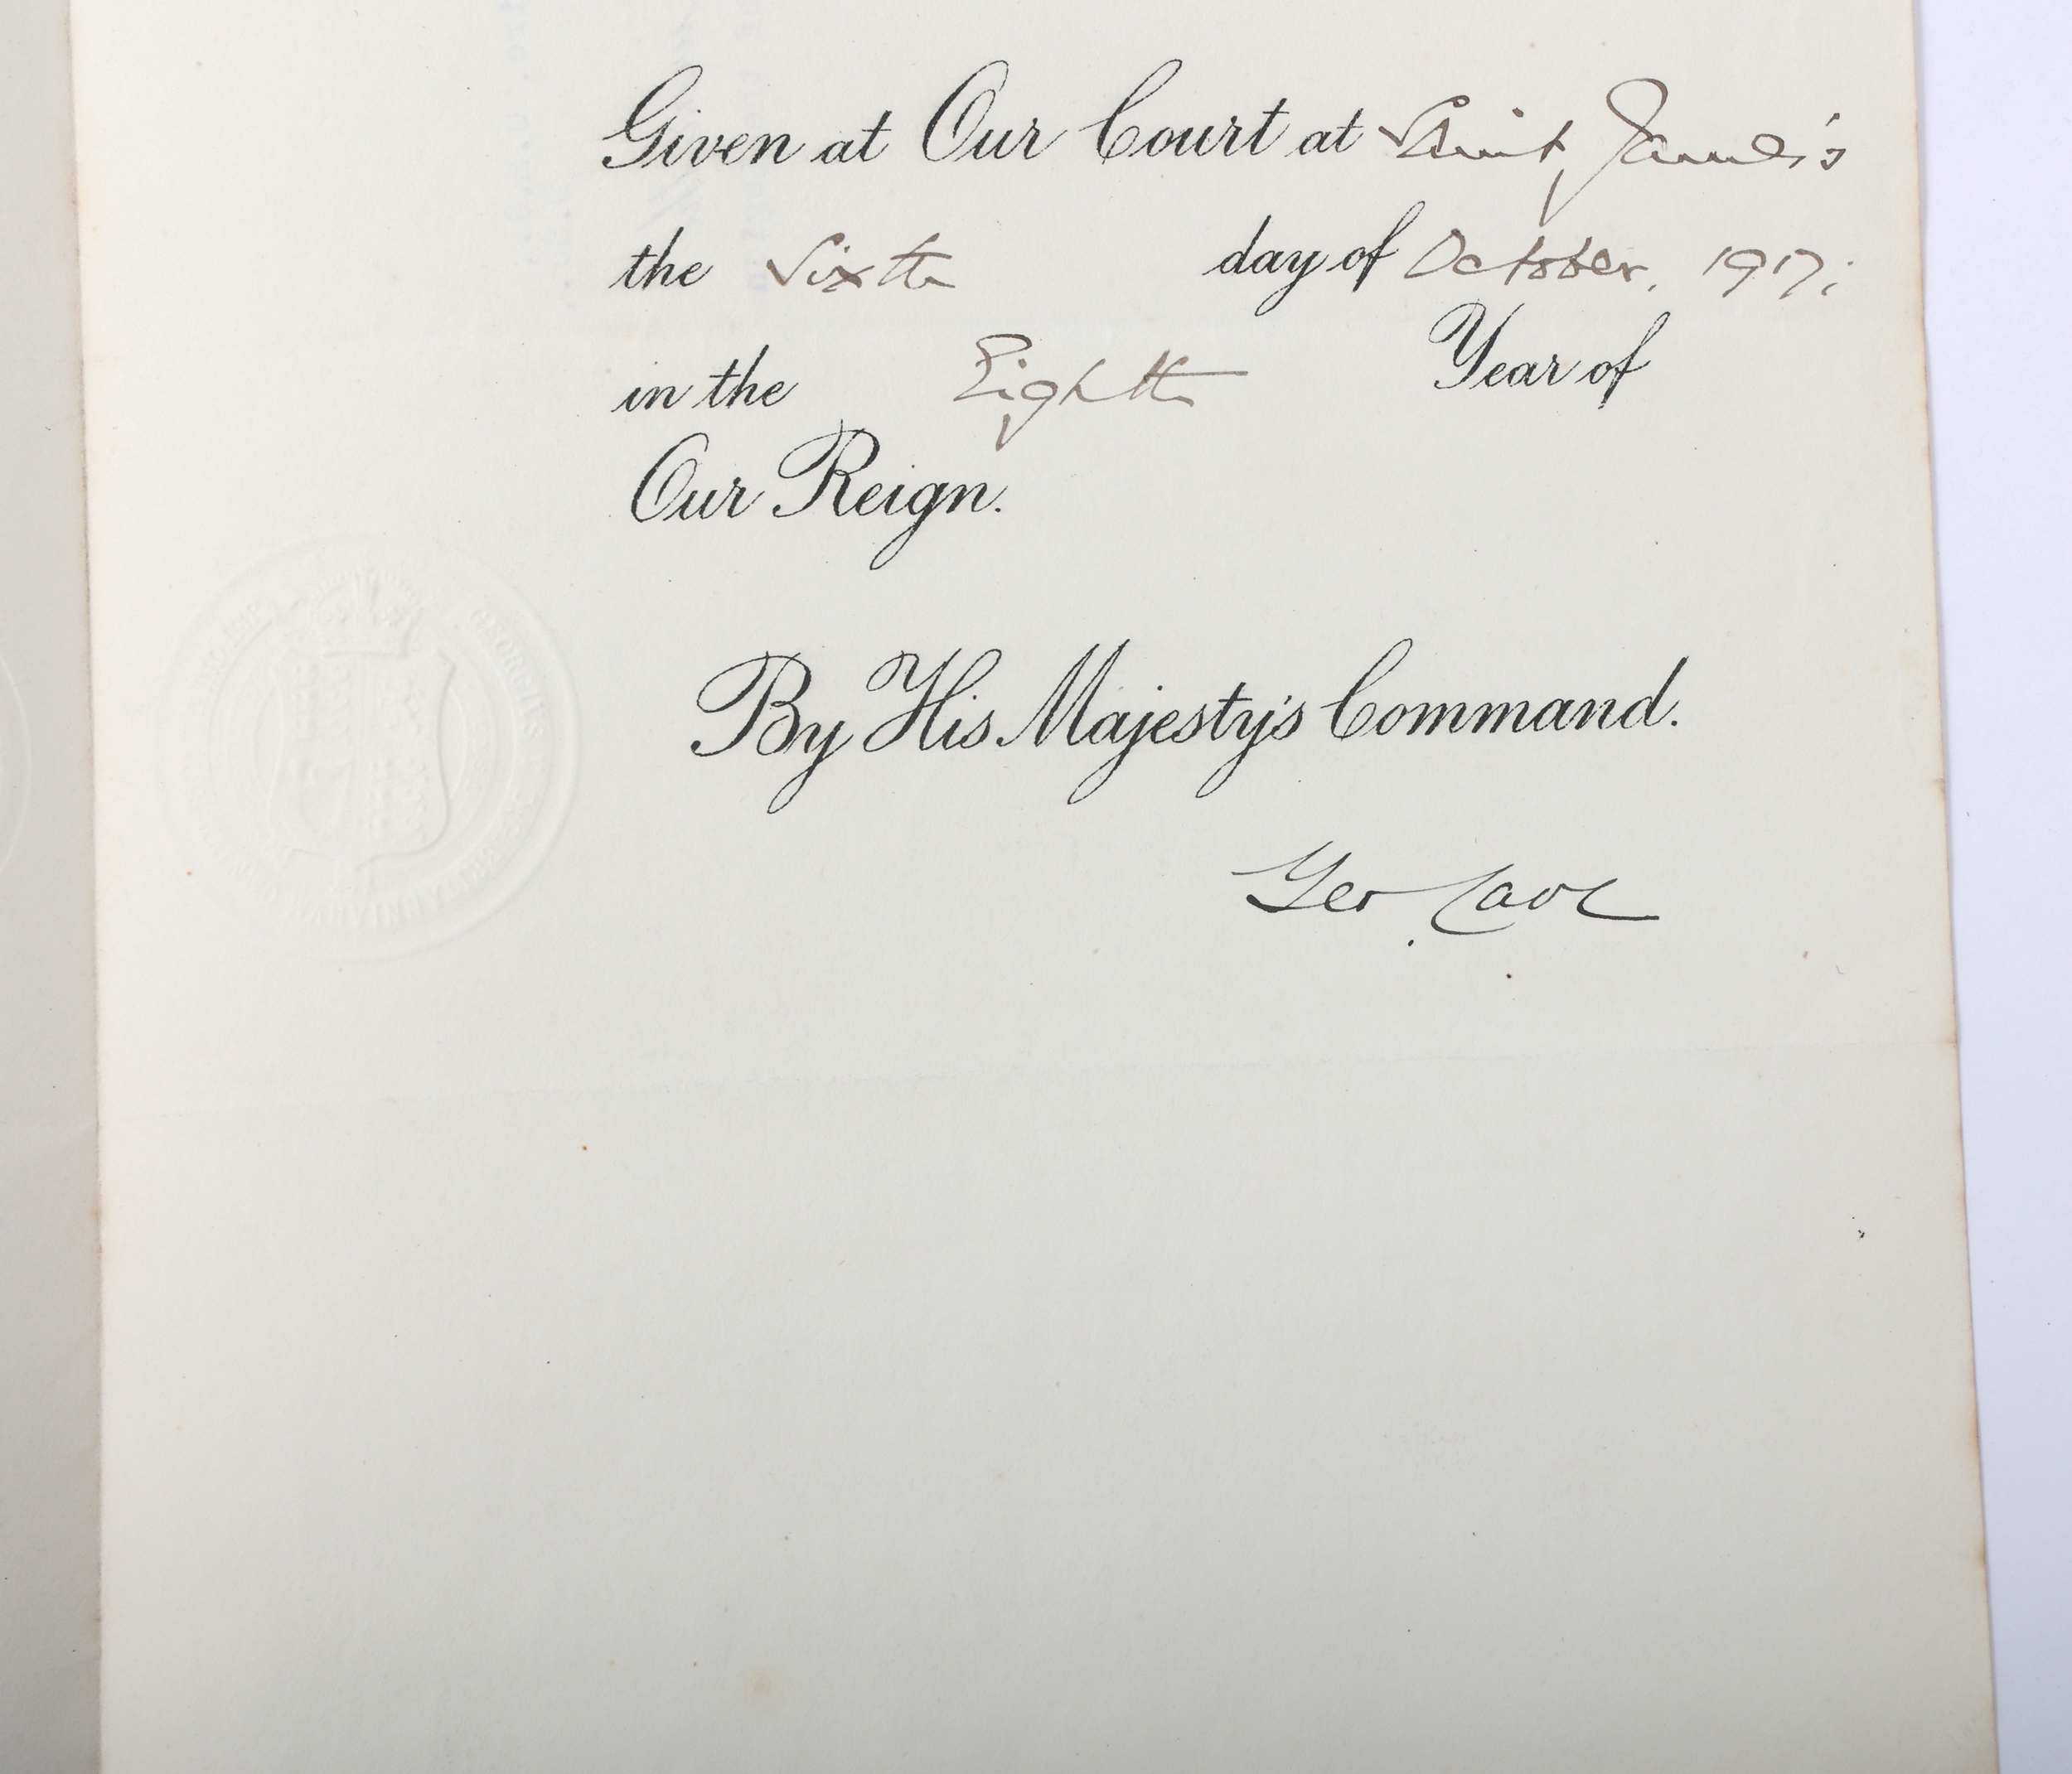 Given at Our Court at Saint James's
the Sixth day of October, 1917;
in the Eighth Year of
Our Reign.
By His Majesty's Command.
Geo Cave
GEORGIUS V
IND: IMP: